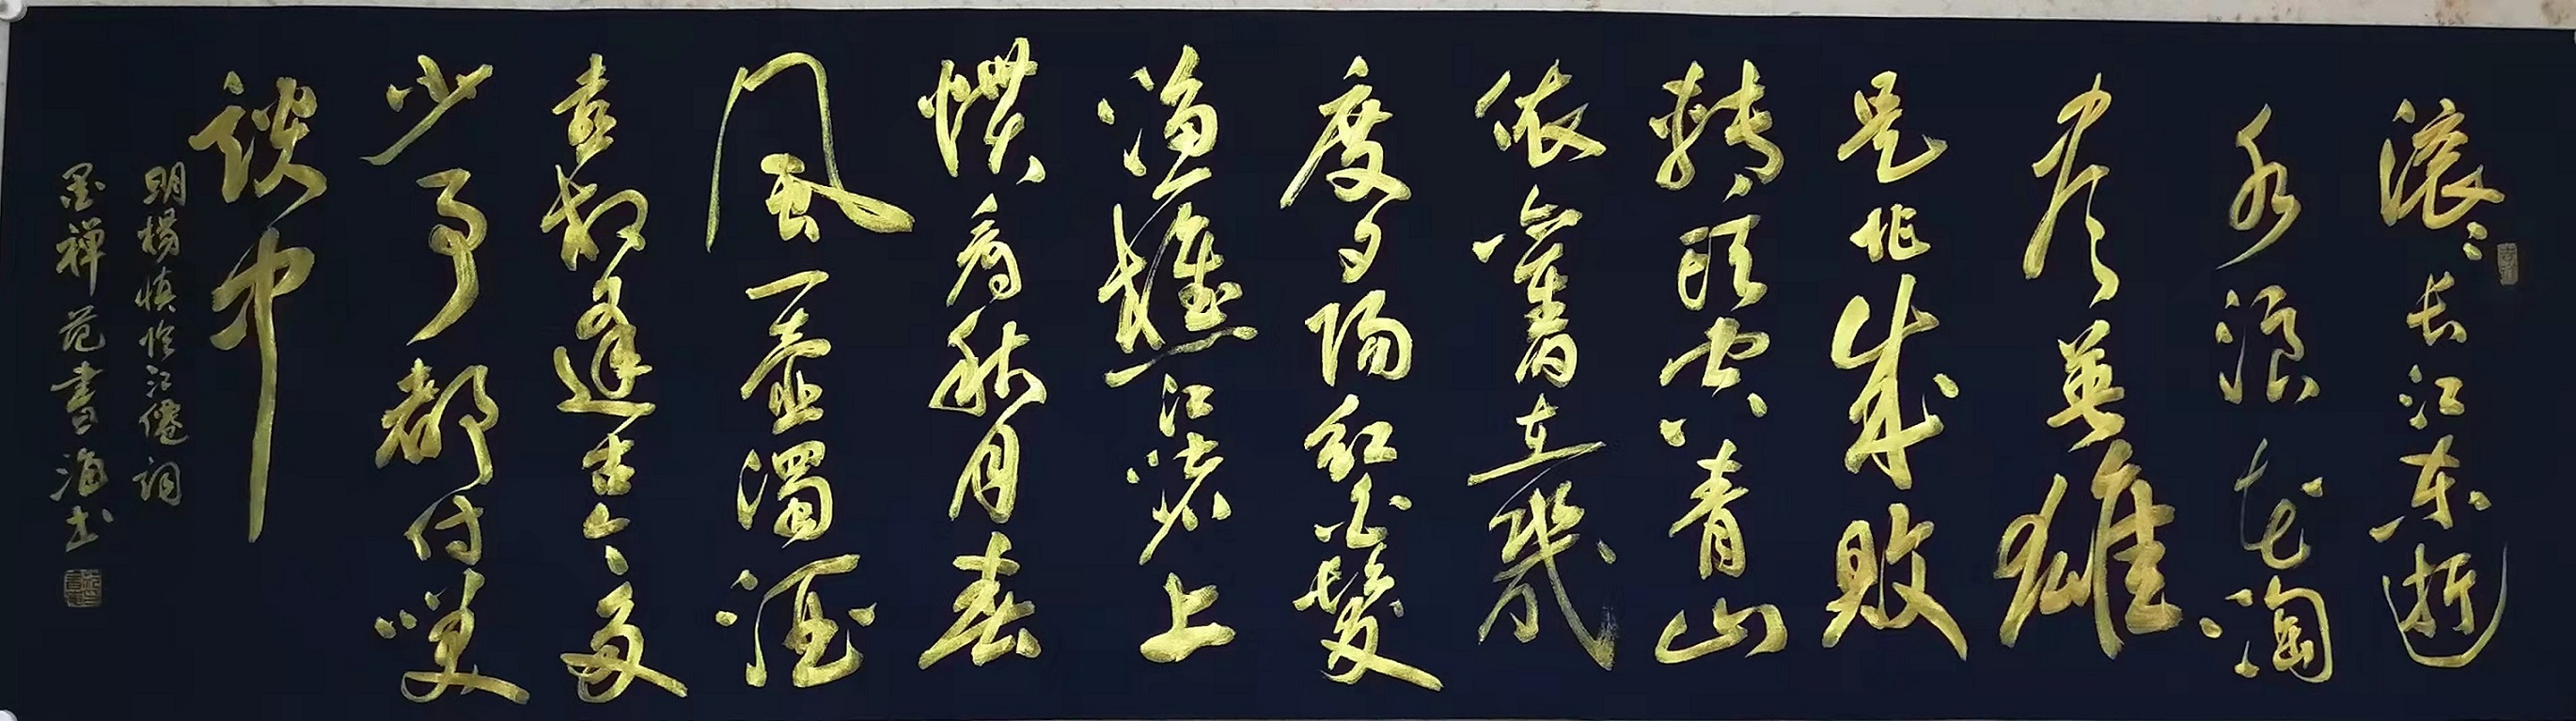 滚滚长江东逝
水浪花淘
尽英雄
是非成败
转头空青山
依舊在幾
度夕陽红白髮
渔樵江渚上
惯看秋月春
风一壶濁酒
喜相逢古今多
少事都付笑
谈中
明楊慎临江僊词
墨禅范書海书